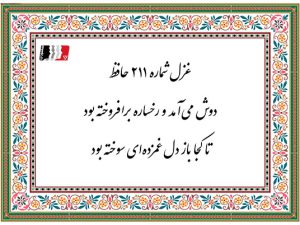 غزل شماره ۲۱۱ حافظ
دوش می‌آمد و رخساره برافروخته بود
تا کجا باز دل غمزده‌ای سوخته بود